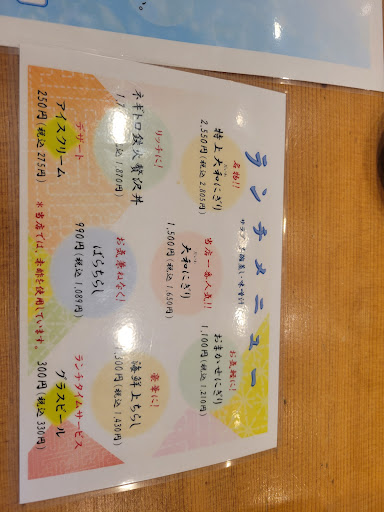 ランチメニュー
サラダ・茶碗蒸し・味噌汁付
名物!!
特上大和にぎり
2,550円(税込 2,805円)
当店一番人気!!
大和にぎり
1,500円(税込 1,650円)
お気軽に!
おまかせにぎり
1,100円(税込 1,210円)
リッチに!
ネギトロ鉄火贅沢丼
(税込 1,870円)
お気兼ねなく!
ばらちらし
990円(税込 1,089円)
豪華に!
海鮮上ちらし
(税込 1,430円)
デザート
アイスクリーム
250円(税込 275円)
ランチタイムサービス
グラスビール
300円(税込 330円)
*当店では、赤酢を使用しています。